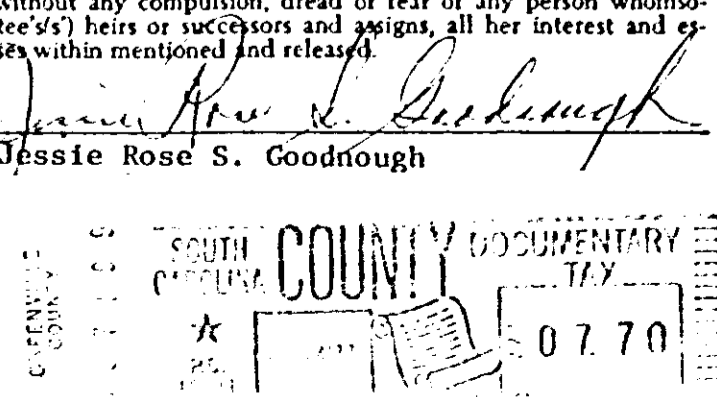 without any compulsion, dread or fear of any person whomso-
tee's/s') heirs or successors and assigns, all her interest and es-
ses within mentioned and released.
Jessie Rose S. Goodnough
Jessie Rose S. Goodnough
GREENVILLE COUNTY
SOUTH CAROLINA
COUNTY
DOCUMENTARY TAX
07.70